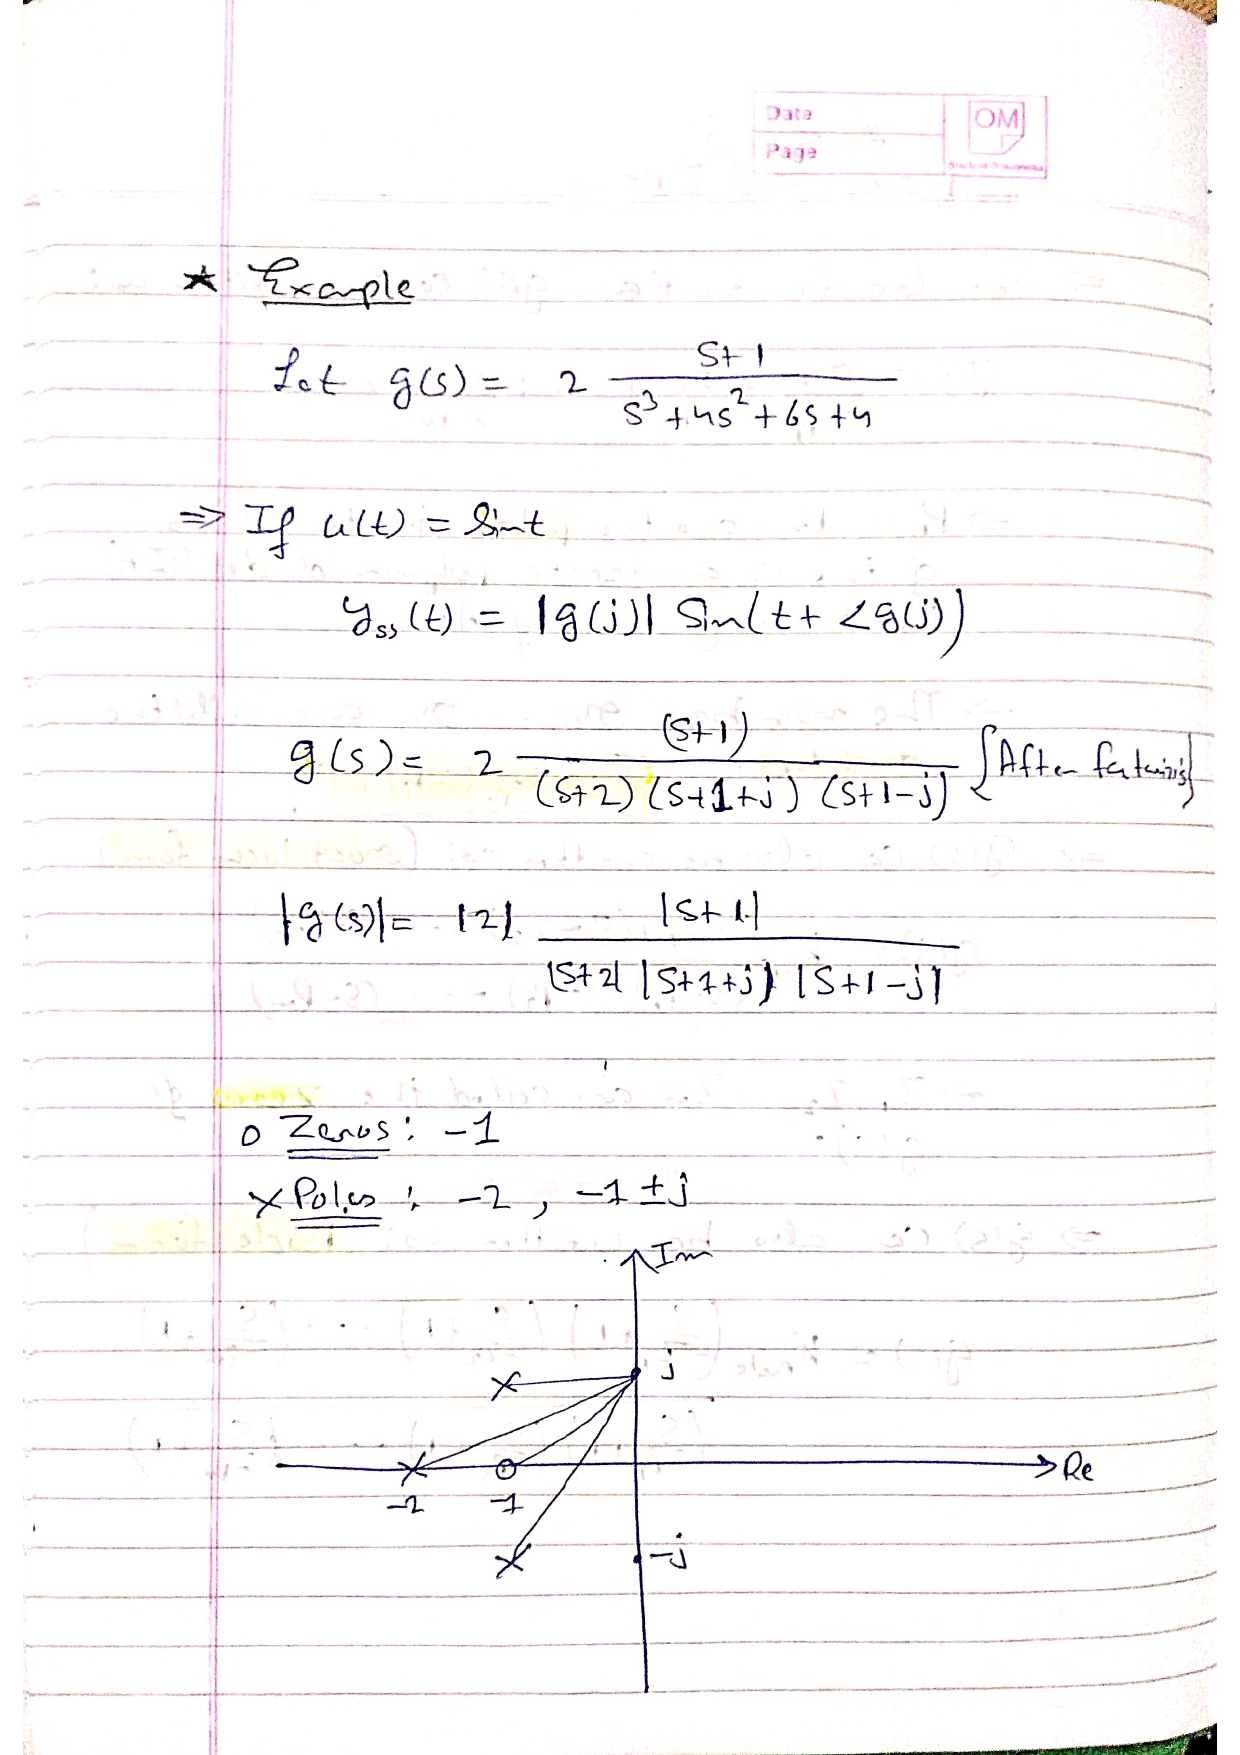 Date
Page
OM
★ Example
Let g(s) = 2 (s+1)/(s³+4s²+6s+4)
⇒ If u(t) = Sint
y_ss(t) = |g(j)| Sin(t + ∠g(j))
g(s) = 2 (s+1)/((s+2)(s+1+j)(s+1-j))  {After
|g(s)| = |2| |s+1|/(|s+2| |s+1+j| |s+1-j|)
o Zeros: -1
× Poles: -2, -1 ± j
Im
j
-2 -1
Re
-j